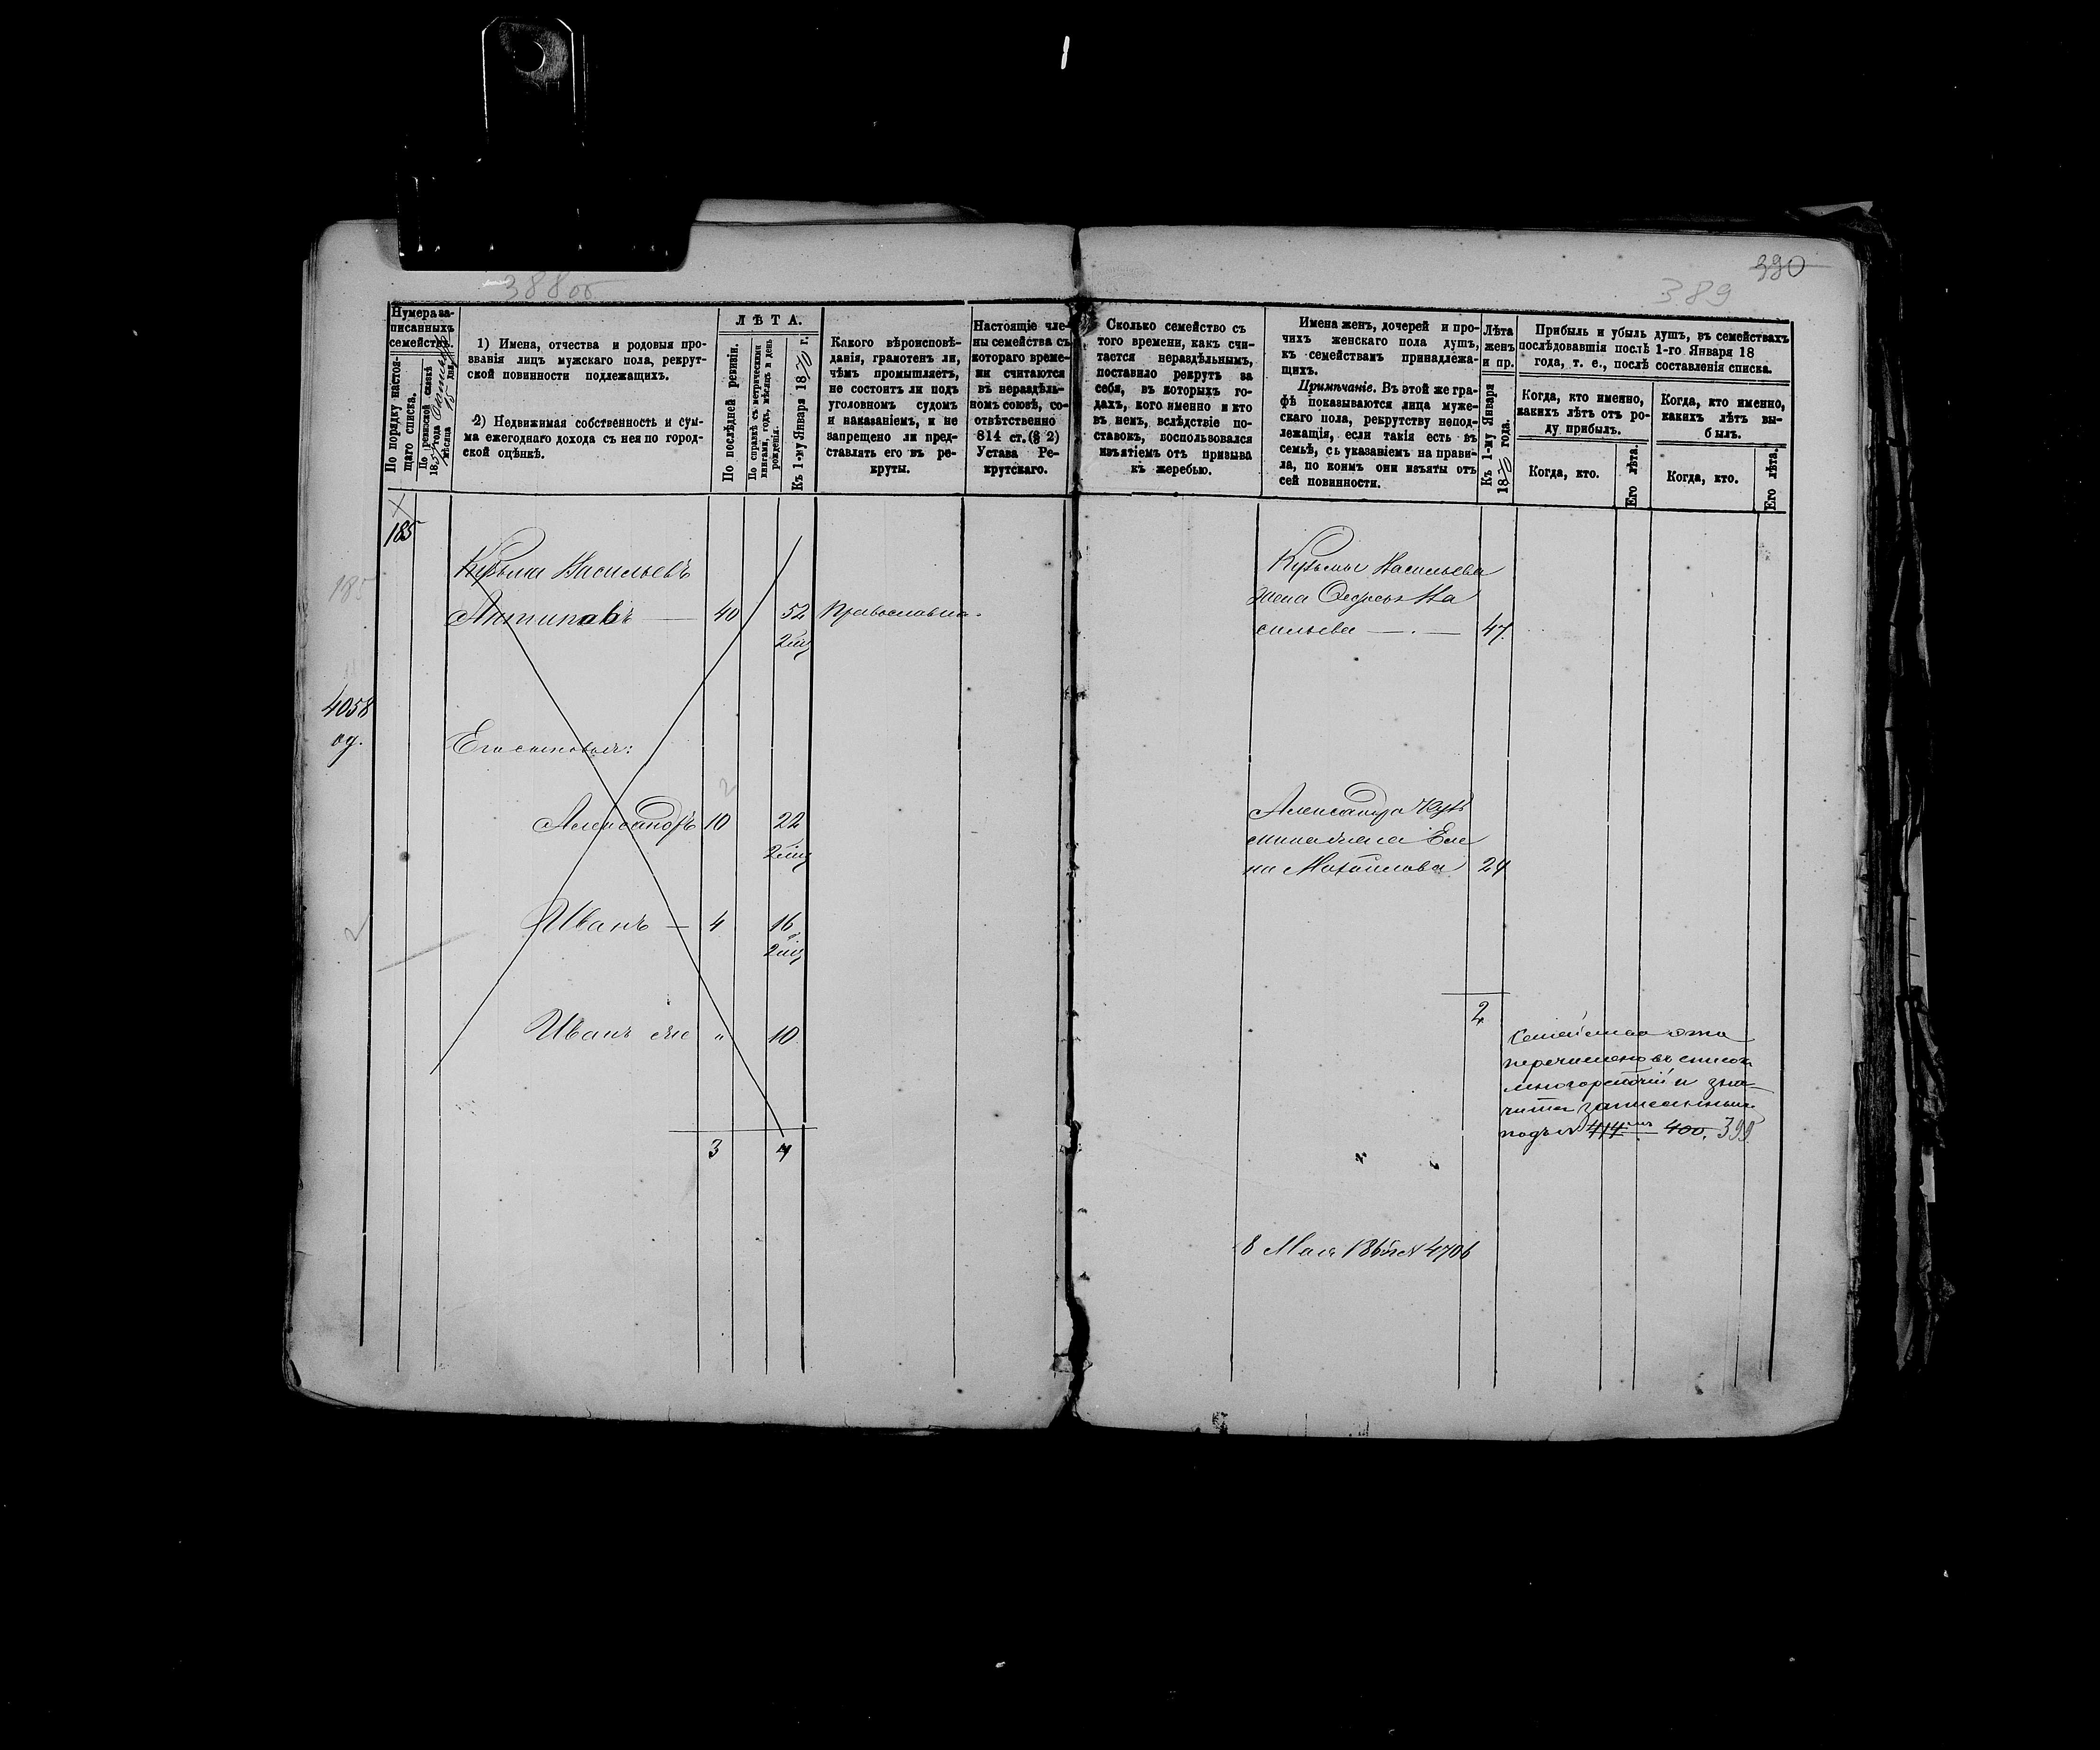 388об
389
390
Нумера за-
писанныхъ
семействъ.
По порядку настоя-
щаго списка.
По ревизской сказкѣ
185 года
мѣсяца 15 дня
1) Имена, отчества и родовыя про-
званія лицъ мужскаго пола, рекрут-
ской повинности подлежащихъ.
2) Недвижимая собственность и сум-
ма ежегоднаго дохода съ нея по город-
ской оцѣнкѣ.
ЛѢТА.
По послѣдней ревизіи.
По справкѣ съ метрическими
книгами, годъ, мѣсяцъ и день
рожденія.
Къ 1-му Января 1870 г.
Какого вѣроисповѣ-
данія, грамотенъ ли,
чѣмъ промышляетъ,
не состоитъ ли подъ
уголовномъ судомъ
и наказаніемъ, и не
запрещено ли пред-
ставлять его въ ре-
круты.
Настоящіе чле-
ны семейства съ
котораго време-
ни считаются
въ нераздѣль-
номъ союзѣ, со-
отвѣтственно
814 ст. (§ 2)
Устава Ре-
крутскаго.
Сколько семейство съ
того времени, какъ счи-
тается нераздѣльнымъ,
поставило рекрутъ за
себя, въ которыхъ го-
дахъ, кого именно и кто
въ немъ, вслѣдствіе по-
ставокъ, воспользовался
изъятіемъ отъ призыва
къ жеребью.
Имена женъ, дочерей и про-
чихъ женскаго пола душъ,
къ семействамъ принадлежа-
щихъ.
Примѣчаніе. Въ этой же гра-
фѣ показываются лица муже-
скаго пола, рекрутству непод-
лежащія, если такія есть въ
семьѣ, съ указаніемъ на прави-
ла, по коимъ они изъяты отъ
сей повинности.
Лѣта
женъ
и пр.
Къ 1-му Января
1870 года.
Прибыль и убыль душъ, въ семействахъ
послѣдовавшія послѣ 1-го Января 18
года, т. е., послѣ составленія списка.
Когда, кто именно,
какихъ лѣтъ отъ ро-
ду прибылъ.
Когда, кто именно,
какихъ лѣтъ вы-
былъ.
Когда, кто.
Его лѣта.
Когда, кто.
Его лѣта.
185
185
Кузьма Васильевъ
Антиповъ — 40 52 Православна.
4058
Его сыновья:
2
Александръ 10 22
Иванъ — 4 16
2
Иванъ же " 10
3 4
Кузьмы Васильева
жена Ва
сильева — 47
Александра Кузь
мина жена Еле
на Михайлова 24
2
Семейство это
перечислено въ списокъ
и зна
чится записаннымъ
подъ № 414 400. 390
8 Мая № 4706